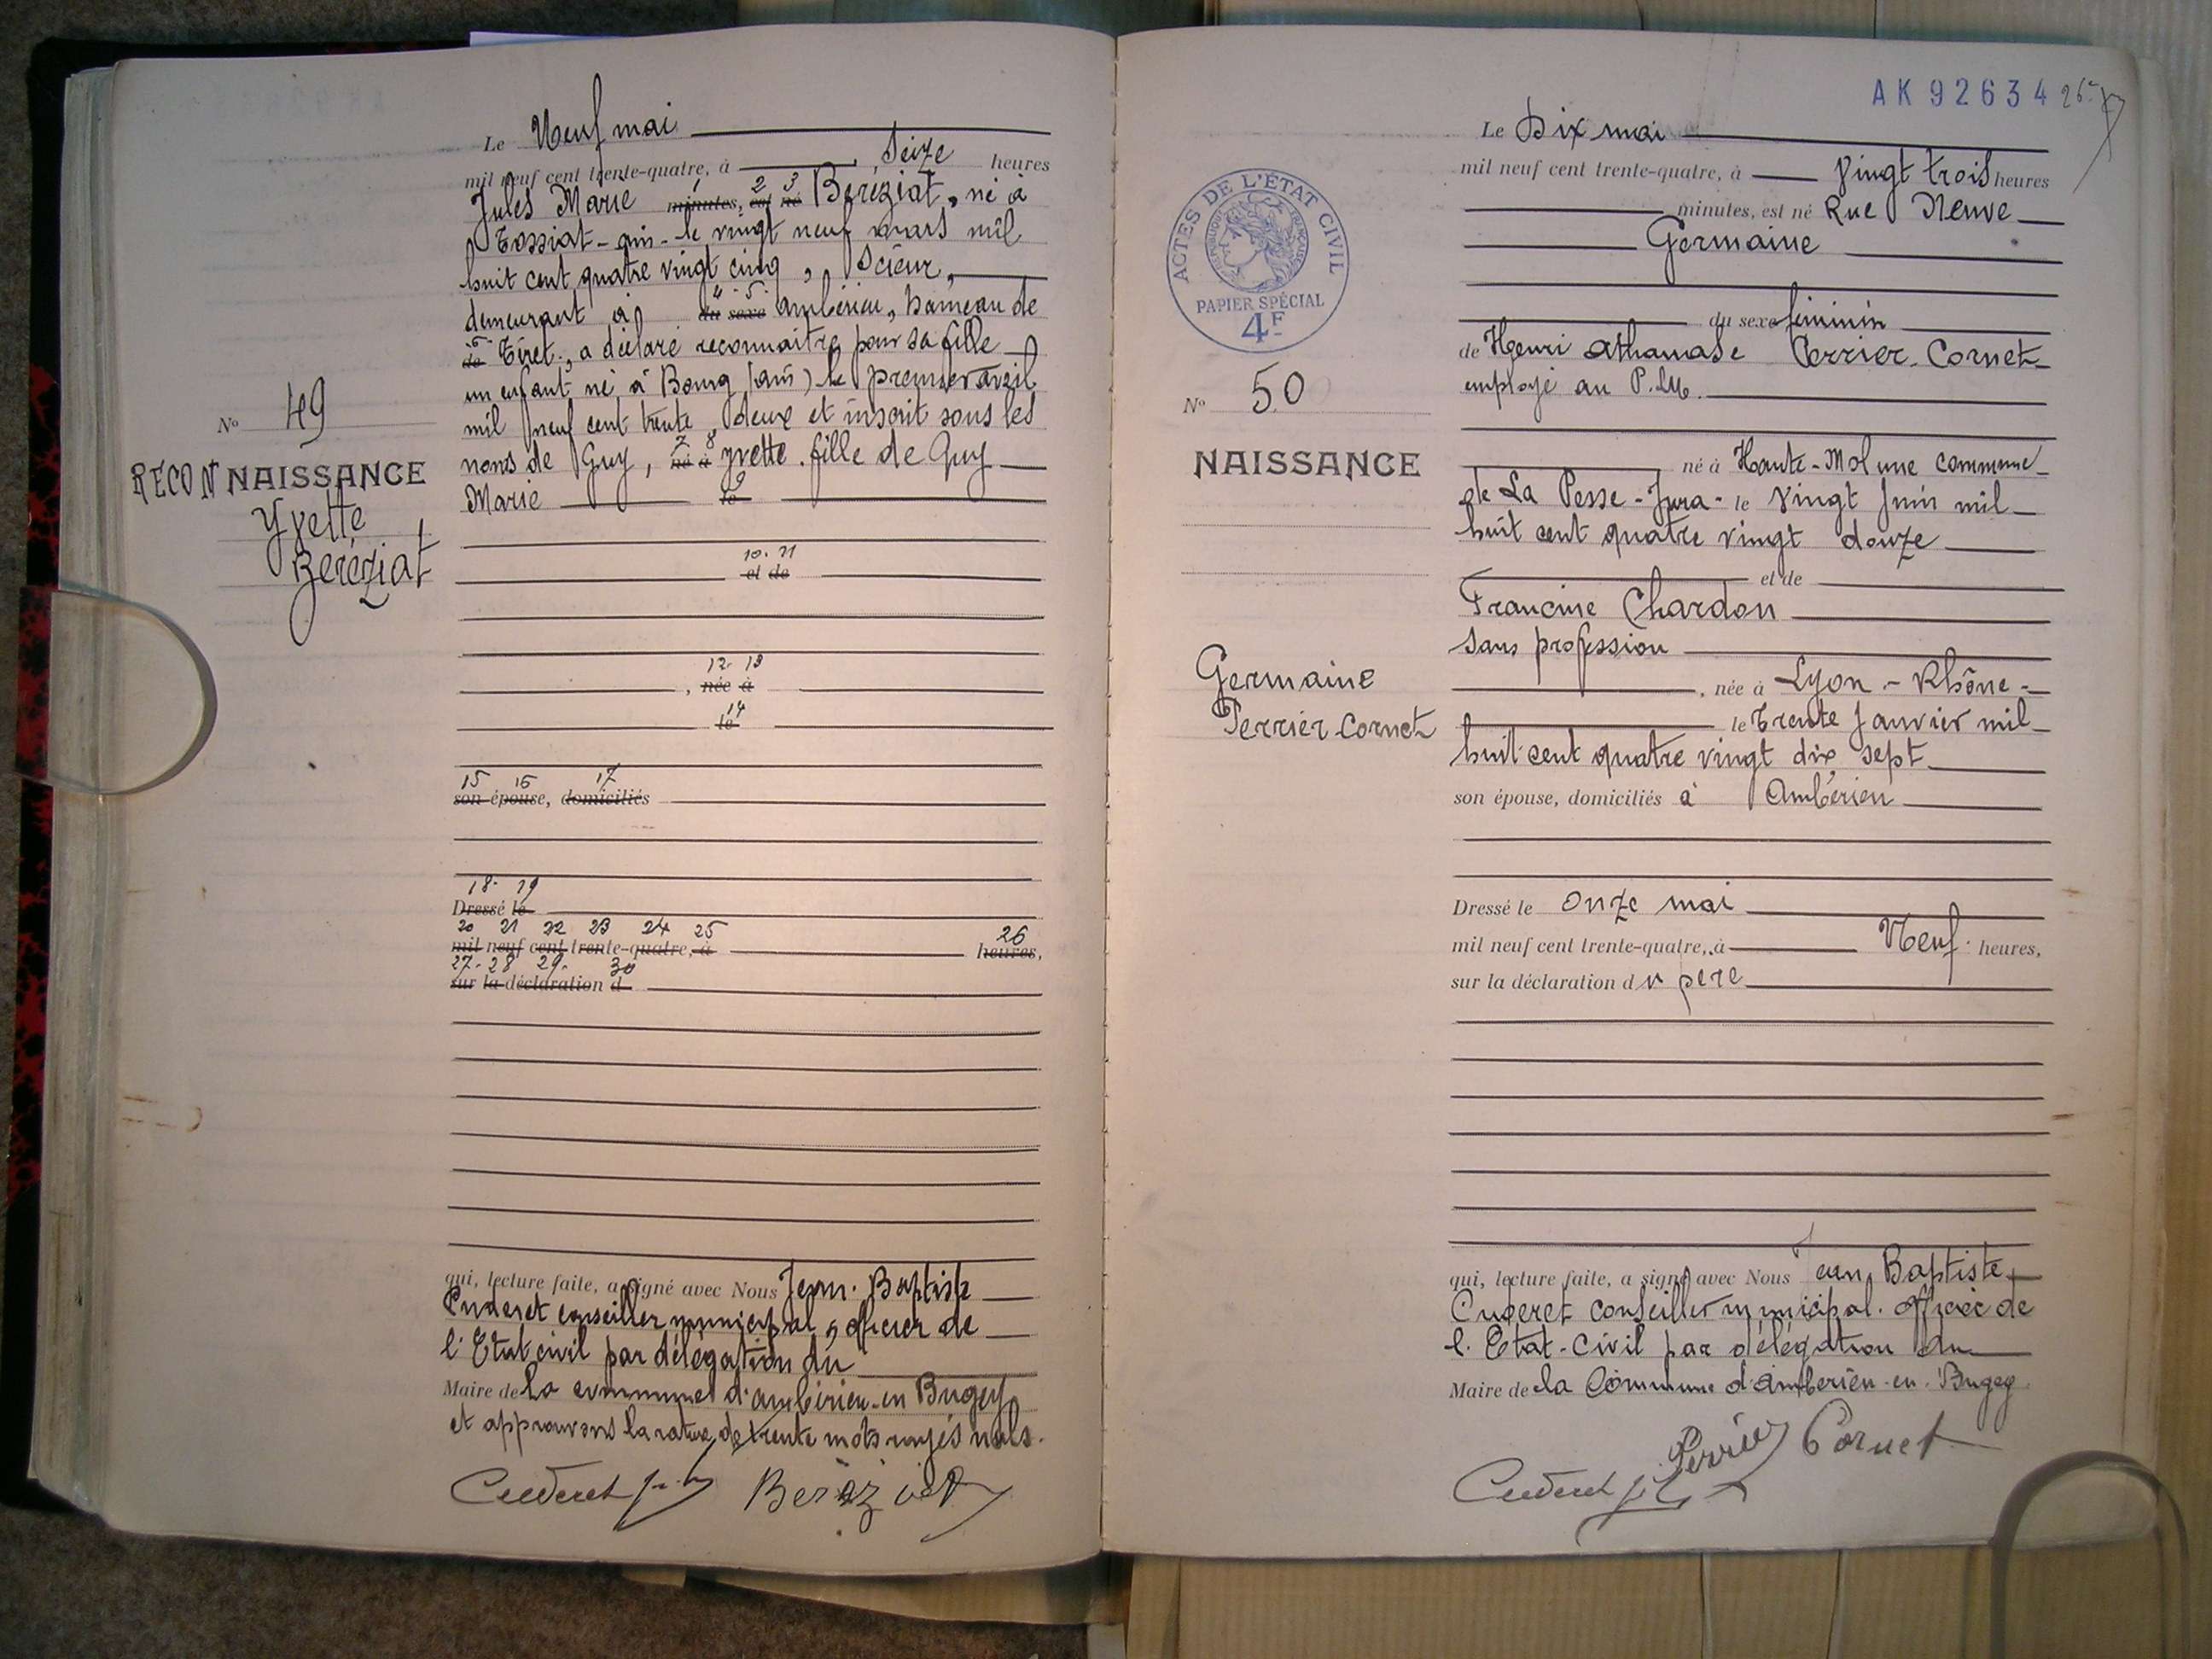 Le Neuf mai
mil neuf cent trente-quatre, à Seize heures
Jules Marie minutes, est né Beréziat, né à
Tossiat - ain - le vingt neuf mars mil
huit cent quatre vingt cinq, Scieur,
demeurant à du sexe Ambérieu, hameau de
de Tiret, a déclaré reconnaitre pour sa fille
un enfant né à Bourg (ain) le premier avril
mil neuf cent trente deux et inscrit sous les
noms de Guy, né à yvette. fille de Guy
Marie le
10. 11
et de
12. 13
, née à
14
le
15 16 17
son épouse, domiciliés
18. 19
Dressé le
20 21 22 23 24 25 26
mil neuf cent trente-quatre, à heures,
27. 28 29. 30
sur la déclaration d
qui, lecture faite, a signé avec Nous Jean. Baptiste
Cuderet conseiller municipal, officier de
l'Etat civil par délégation du
Maire de la commune d'ambérieu-en Bugey
et approuvons la rature de trente mots rayés nuls.
Cuderet Beréziat
N° 49
RECONNAISSANCE
Yvette
Beréziat
AK 92634 26
Le Dix mai
mil neuf cent trente-quatre, à Vingt trois heures
minutes, est né Rue Neuve
Germaine
du sexe féminin
de Henri Athanase Perrier-Cornet
employé au P.L.M.
né à Haute-Molune commune
de La Pesse - Jura - le Vingt Juin mil
huit cent quatre vingt douze
et de
Francine Chardon
Sans profession
, née à Lyon - Rhône -
le Trente Janvier mil
huit cent quatre vingt dix sept
son épouse, domiciliés à Ambérieu
Dressé le onze mai
mil neuf cent trente-quatre, à Neuf heures,
sur la déclaration du père
qui, lecture faite, a signé avec Nous Jean Baptiste
Cuderet conseiller municipal. officier de
l. Etat-Civil par délégation du
Maire de la Commune d'Ambérieu-en-Bugey
Perrier Cornet
Cuderet
ACTES DE L'ÉTAT CIVIL
RÉPUBLIQUE FRANÇAISE
PAPIER SPÉCIAL
4F
N° 50
NAISSANCE
Germaine
Perrier-Cornet